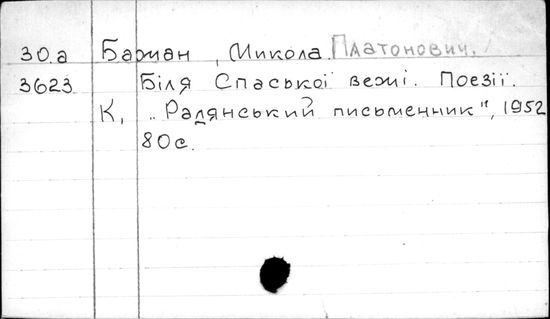 30.а Бажан, Микола Платонович.
3623 Біля Спаської вежі. Поезії.
К, „Радянський письменник", 1952
80с.